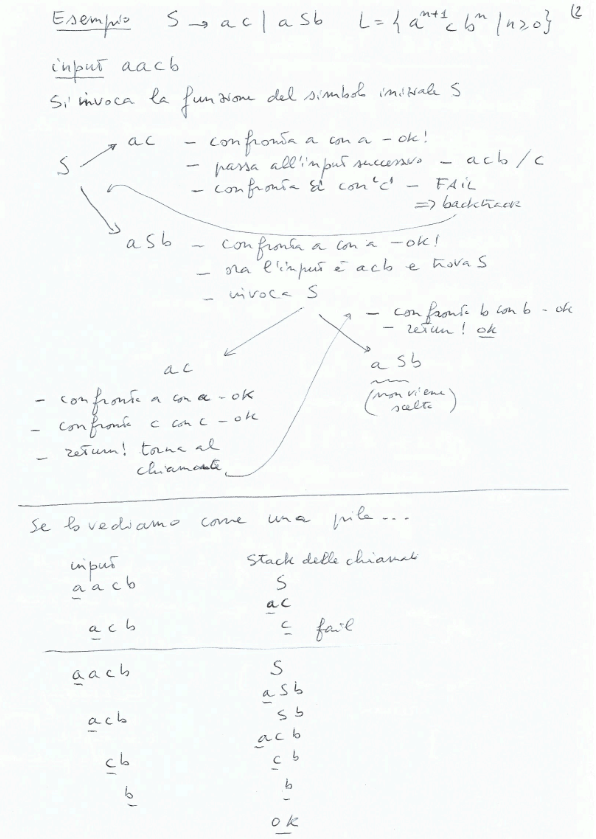 Esempio S → ac | aSb L = { aⁿ⁺¹ c bⁿ | n≥0 } (2
input aacb
Si invoca la funzione del simbolo iniziale S
S
ac - confronta a con a - ok!
- passa all'input successivo - acb / c
- confronta con 'c' - FAIL
=> backtrack
aSb - confronta a con a - ok!
- ora l'input è acb e trova S
- invoca S
- confronta b con b - ok
- return! ok
ac
aSb
(non viene scelta)
- confronta a con a - ok
- confronta c con c - ok
- return! torna al
chiamante
Se lo vediamo come una pila...
input Stack delle chiamate
aacb S
ac
acb c fail
aacb S
aSb
acb Sb
acb
cb cb
b b
ok